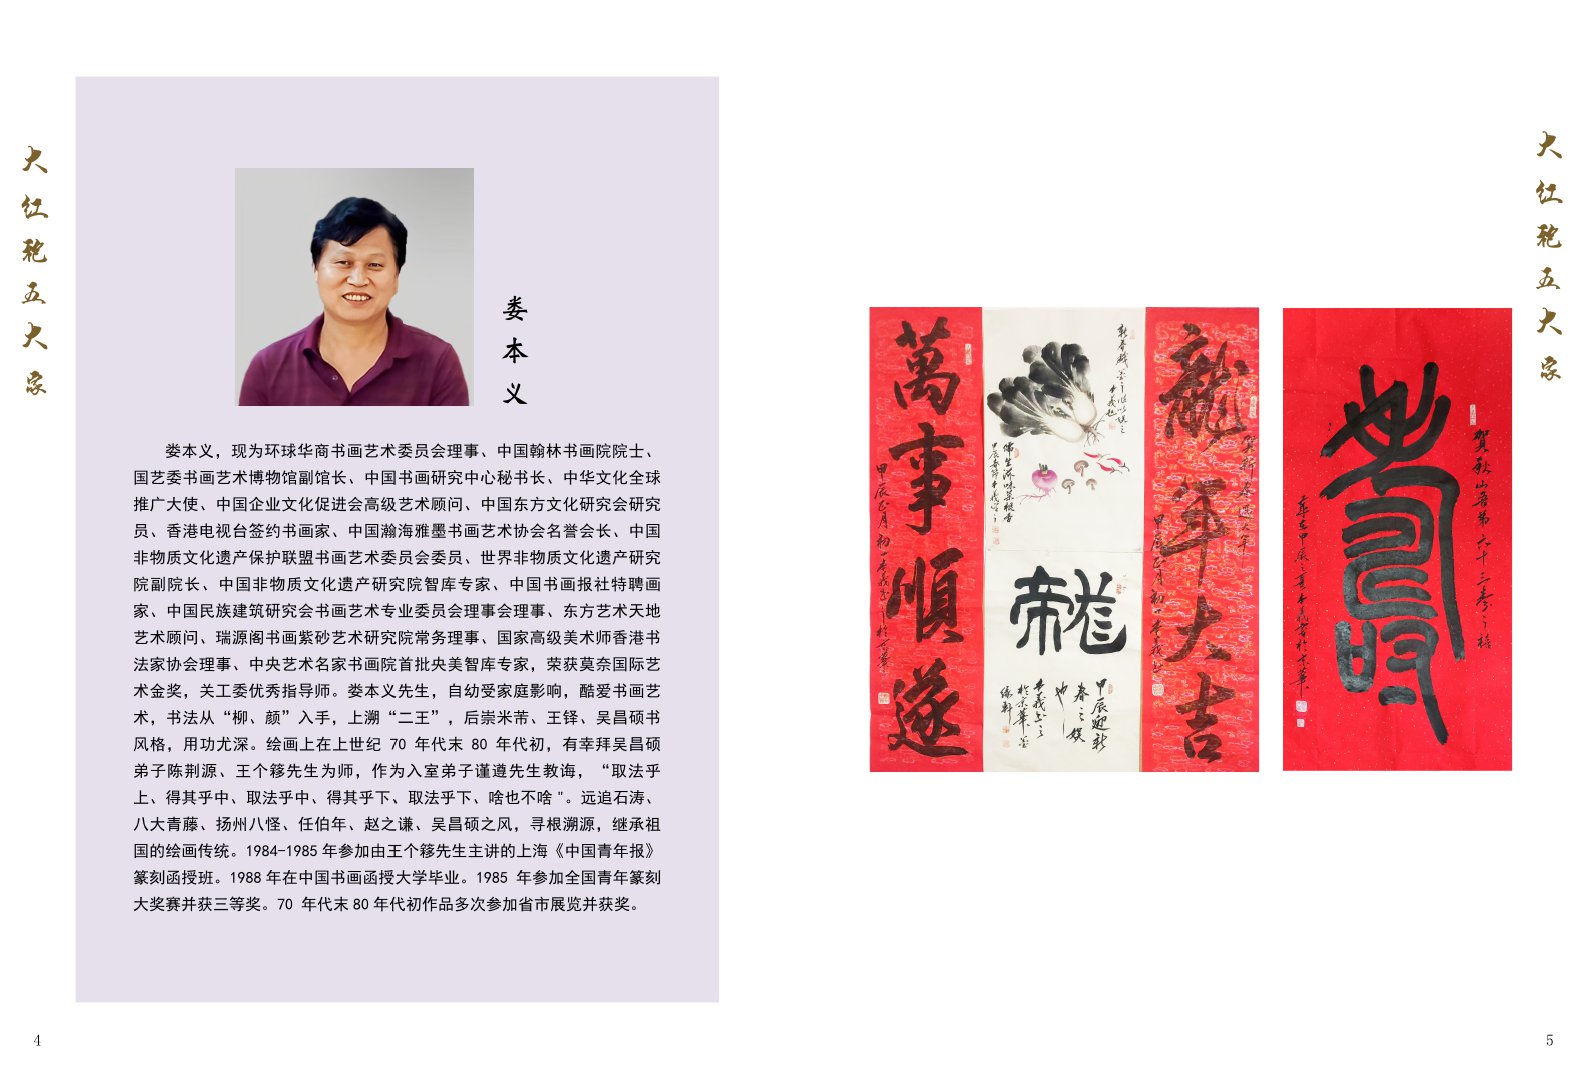 大红袍五大家
娄本义
娄本义，现为环球华商书画艺术委员会理事、中国翰林书画院院士、
国艺委书画艺术博物馆副馆长、中国书画研究中心秘书长、中华文化全球
推广大使、中国企业文化促进会高级艺术顾问、中国东方文化研究会研究
员、香港电视台签约书画家、中国瀚海雅墨书画艺术协会名誉会长、中国
非物质文化遗产保护联盟书画艺术委员会委员、世界非物质文化遗产研究
院副院长、中国非物质文化遗产研究院智库专家、中国书画报社特聘画
家、中国民族建筑研究会书画艺术专业委员会理事会理事、东方艺术天地
艺术顾问、瑞源阁书画紫砂艺术研究院常务理事、国家高级美术师香港书
法家协会理事、中央艺术名家书画院首批央美智库专家，荣获莫奈国际艺
术金奖，关工委优秀指导师。娄本义先生，自幼受家庭影响，酷爱书画艺
术，书法从“柳、颜”入手，上溯“二王”，后崇米芾、王铎、吴昌硕书
风格，用功尤深。绘画上在上世纪 70 年代末 80 年代初，有幸拜吴昌硕
弟子陈荆源、王个簃先生为师，作为入室弟子谨遵先生教诲，“取法乎
上、得其乎中、取法乎中、得其乎下、取法乎下、啥也不啥"。远追石涛、
八大青藤、扬州八怪、任伯年、赵之谦、吴昌硕之风，寻根溯源，继承祖
国的绘画传统。1984-1985 年参加由王个簃先生主讲的上海《中国青年报》
篆刻函授班。1988 年在中国书画函授大学毕业。1985 年参加全国青年篆刻
大奖赛并获三等奖。70 年代末 80 年代初作品多次参加省市展览并获奖。
4
龍年大吉
甲辰正月初一本義书
萬事順遂
甲辰正月初一本義书於京華
甲辰迎新
春之娱
也
本義书之
於京華
賀秋山吾弟六十三寿之禧
歲在甲辰之夏本義书於京華
大红袍五大家
5